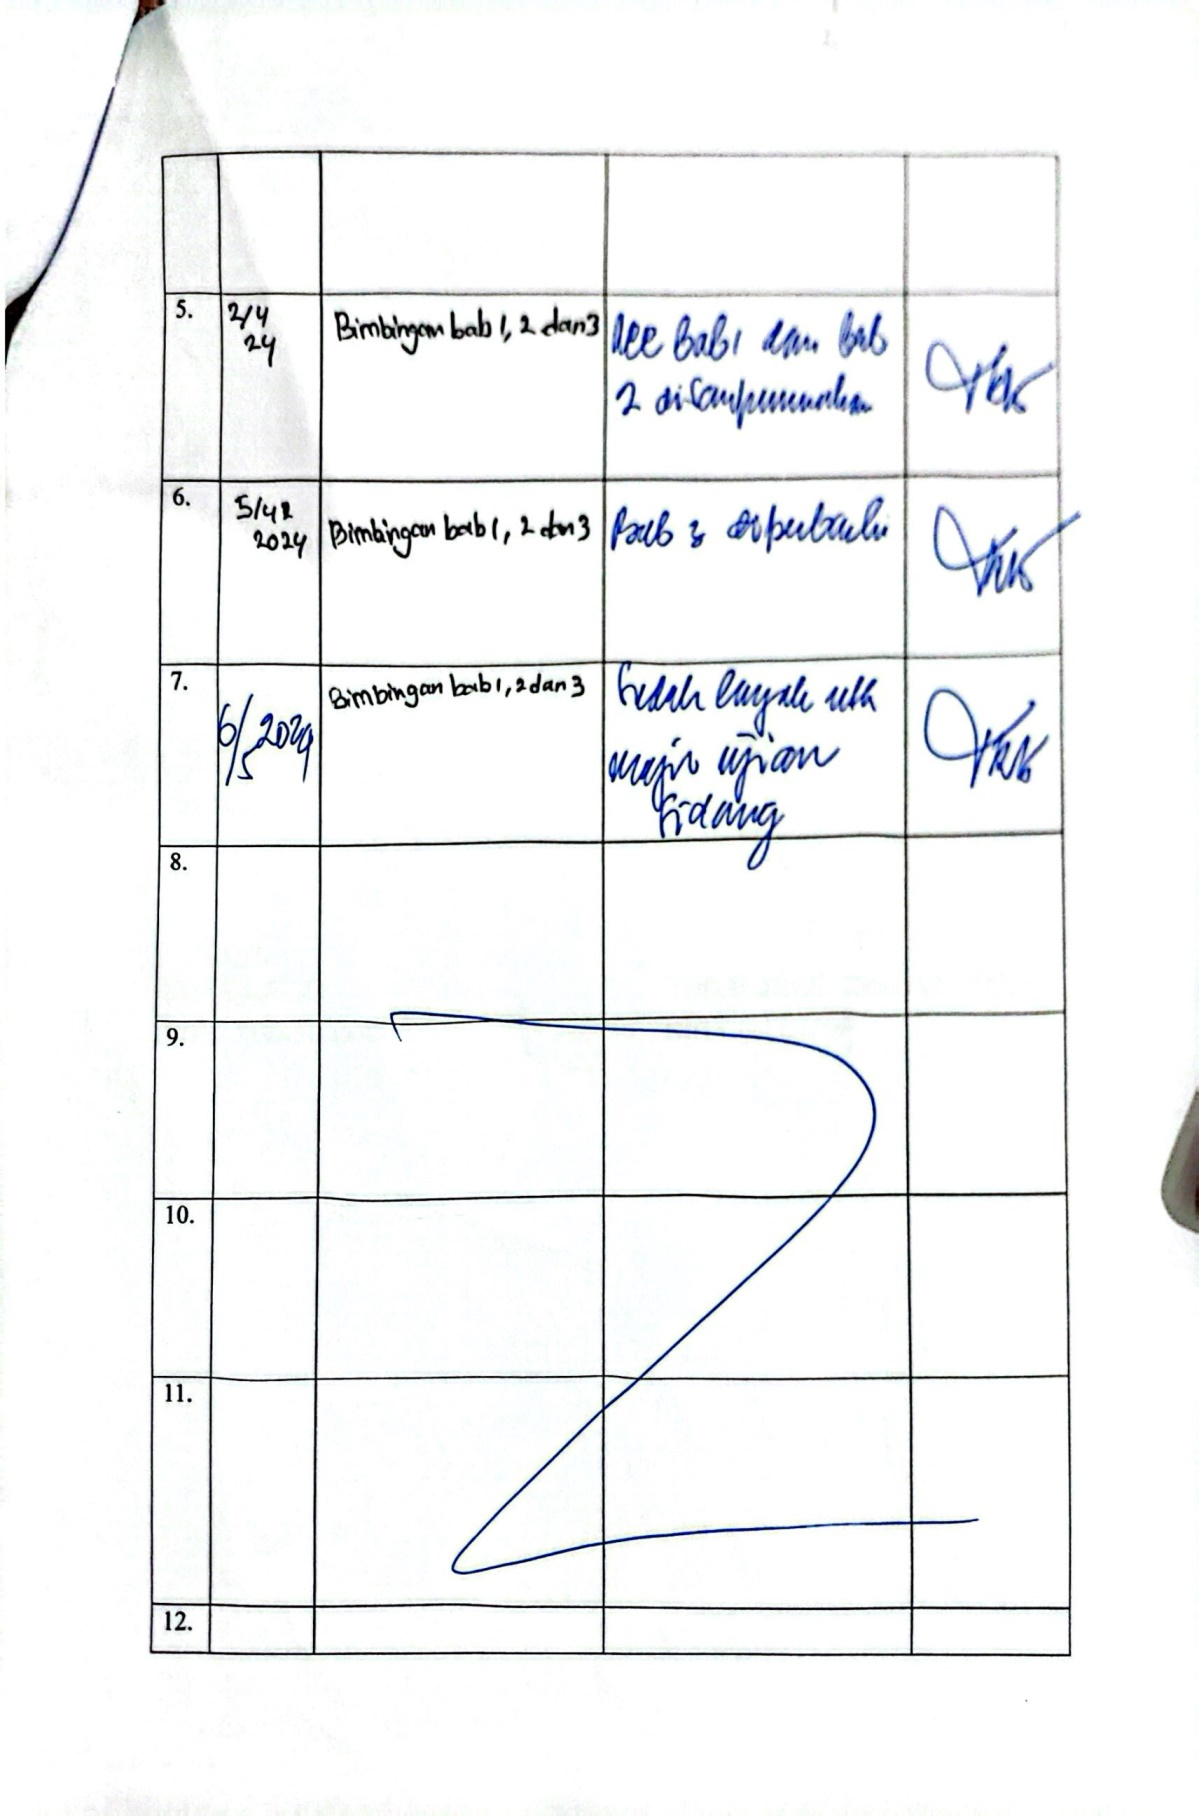 5.
2/4
24
Bimbingan bab 1, 2 dan 3
Acc Bab 1 dan Bab
2 disempurnakan
6.
5/42
2024
Bimbingan bab 1, 2 dan 3
Bab 3 diperbaiki
7.
6/5 2024
Bimbingan bab 1, 2 dan 3
Sudah layak utk
maju ujian
Sidang
8.
9.
10.
11.
12.